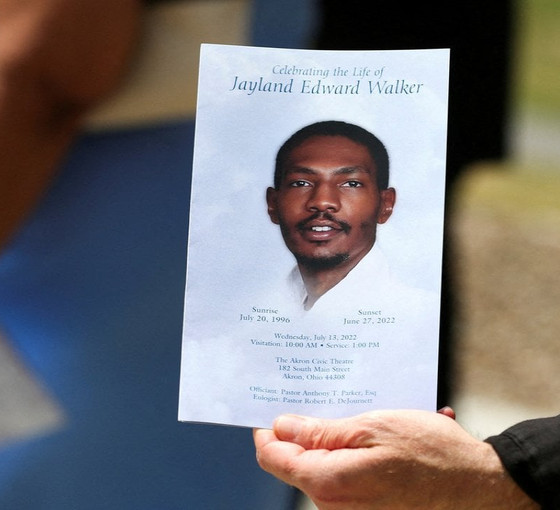 Celebrating the Life of
Jayland Edward Walker
Sunrise
July 20, 1996
Sunset
June 27, 2022
Wednesday, July 13, 2022
Visitation: 10:00 AM • Service: 1:00 PM
The Akron Civic Theatre
182 South Main Street
Akron, Ohio 44308
Officiant: Pastor Anthony T. Parker, Esq
Eulogist: Pastor Robert E. DeJournett